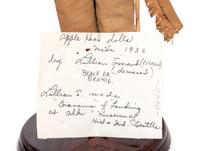 Apple Head Dolls
Made 1936
by Lillian Smart
(deceased)
BEACH DR.
SEATTLE.
Lillian S. made
"Diorama of Landing
at Alki" Museum of
Hist & Ind. Seattle